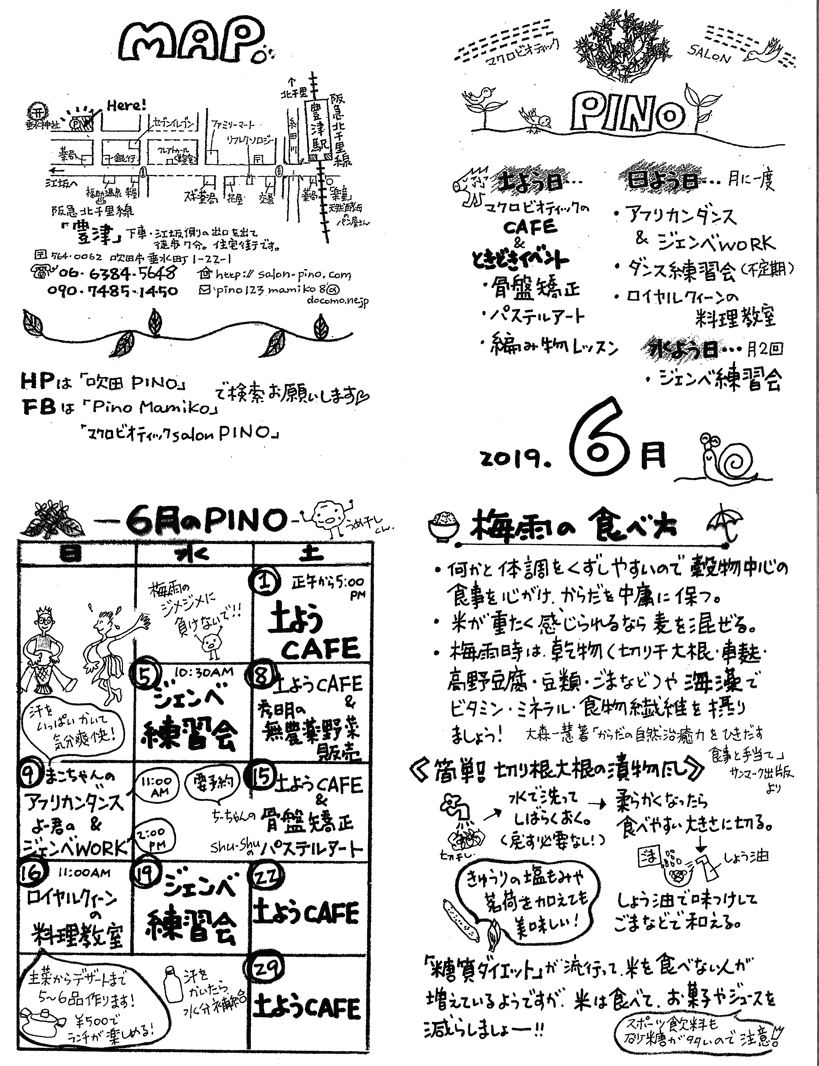 MAP
Here!
セブンイレブン
ファミリーマート
リフレクソロジー
北千里
豊津駅
阪急北千里線
糸田川
垂水神社
薬局
銀行
フレンドカール
江坂へ
スギ薬局
花屋
交番
パン屋さん
阪急北千里線
「豊津」下車・江坂側の出口を出て
徒歩7分。住宅街です。
564-0062 吹田市垂水町1-22-1
06-6384-5648
http://salon-pino.com
090-7485-1450
pino123mamiko8@
docomo.ne.jp
HPは「吹田PINO」
で検索お願いします
FBは「Pino Mamiko」
「マクロビオティックsalon PINO」
マクロビオティック
SALON
PINO
土よう日…
マクロビオティックの
CAFE
&
ときどきイベント
・骨盤矯正
・パステルアート
・編み物レッスン
日よう日…月に一度
・アフリカンダンス
& ジェンベWORK
・ダンス練習会(不定期)
・ロイヤルクィーンの
料理教室
水よう日…月2回
・ジェンベ練習会
2019. 6月
−6月のPINO−
うめ干しくん。
日 水 土
梅雨の
ジメジメに
負けないで!!
① 正午から5:00
PM
土よう
CAFE
汗を
いっぱいかいて
気分爽快!
⑤ 10:30AM
ジェンベ
練習会
⑧ 土ようCAFE
&
秀明の
無農薬野菜
販売
⑨ まこちゃんの
アフリカンダンス
&
よー君の
ジェンベWORK
11:00
AM
要予約
2:00
PM
⑮ 土ようCAFE
&
ちーちゃんの骨盤矯正
shu-shuのパステルアート
⑯ 11:00AM
ロイヤルクィーン
の
料理教室
⑲ ジェンベ
練習会
㉒
土ようCAFE
主菜からデザートまで
5〜6品作ります!
¥500で
ランチが楽しめる!
汗を
かいたら
水分補給
㉙
土ようCAFE
梅雨の食べ方
・何かと体調をくずしやすいので穀物中心の
食事を心がけ、からだを中庸に保つ。
・米が重たく感じられるなら麦を混ぜる。
・梅雨時は、乾物(切り干大根・車麩・
高野豆腐・豆類・ごまなど)や海藻で
ビタミン・ミネラル・食物繊維を摂り
ましょう!
大森一慧著「からだの自然治癒力をひきだす
食事と手当て」
サンマーク出版
より
《簡単! 切り根大根の漬物風》
水で洗って
しばらくおく。
(戻す必要なし!)
切干し
→柔らかくなったら
食べやすい大きさに切る。
ごま
しょう油
しょう油で味つけして
ごまなどで和える。
きゅうりの塩もみや
茗荷を加えても
美味しい!
「糖質ダイエット」が流行って、米を食べない人が
増えているようですが、米は食べて、お菓子やジュースを
減らしましょー!!
スポーツ飲料も
砂糖が多いので注意!